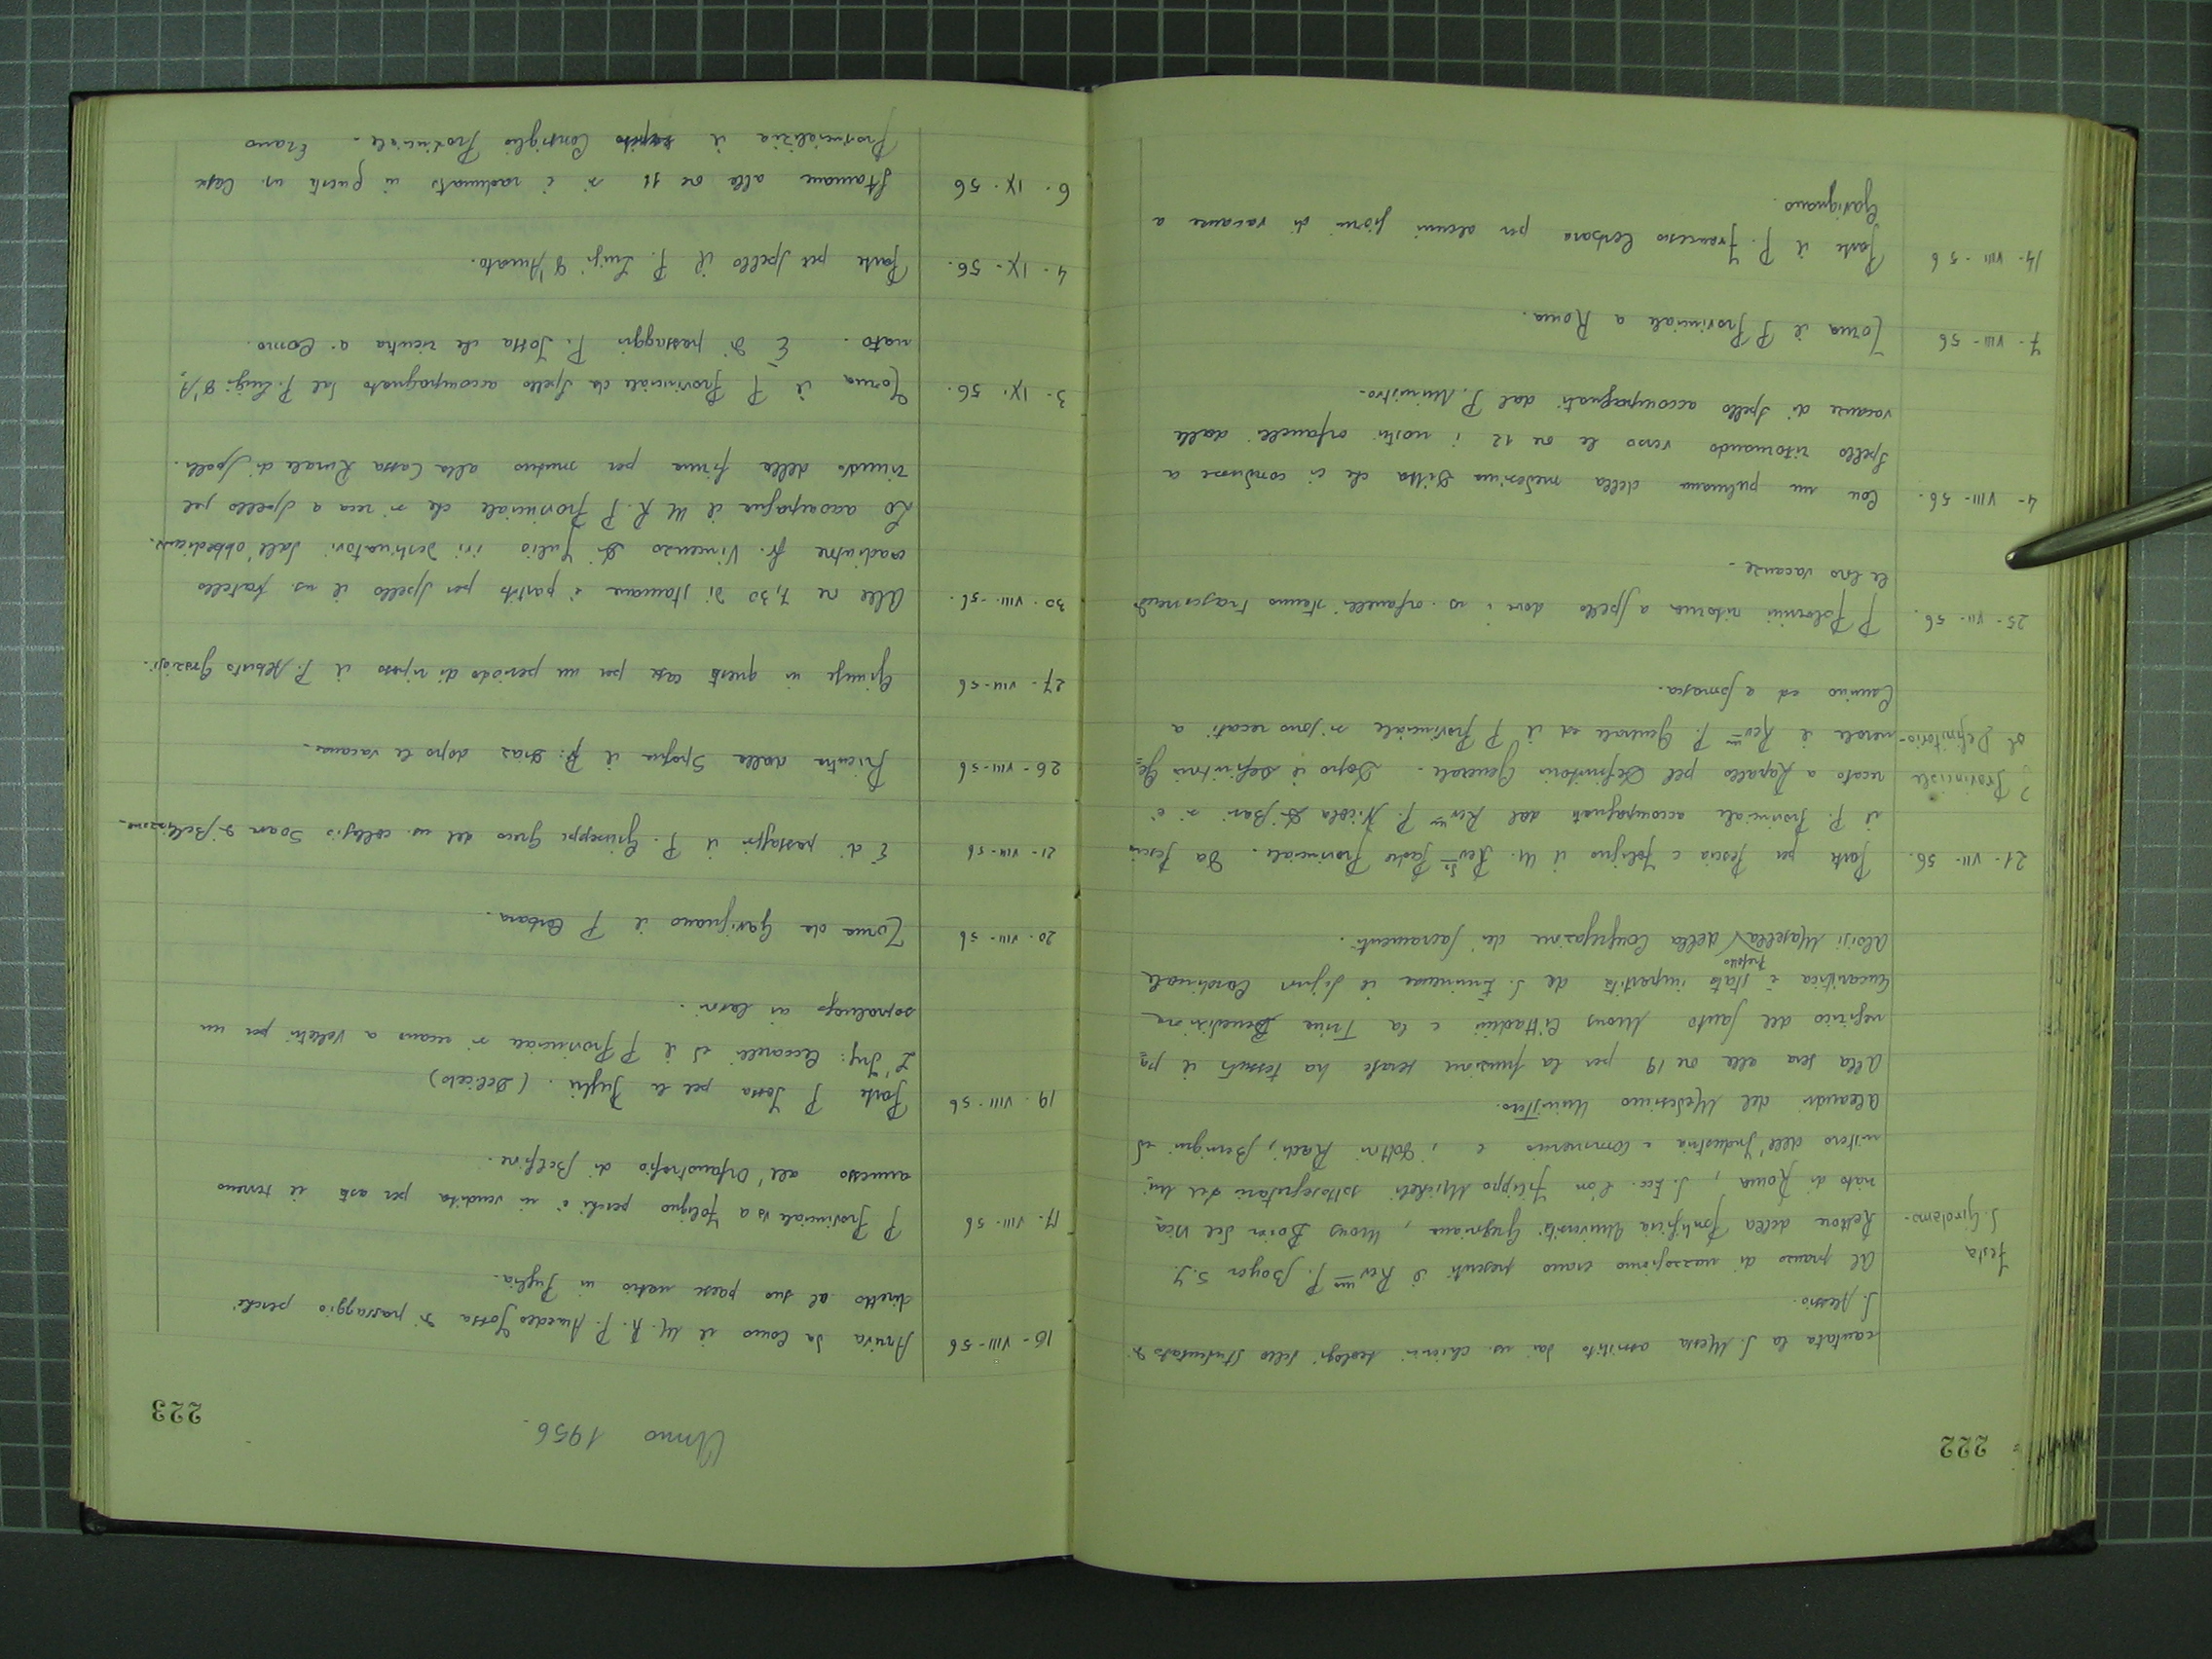 222
cantata la S. Messa assistito dai ns. chierici teologi dello studentato di
S. Alessio.
Festa
S. Girolamo.
Al pranzo di mezzogiorno erano presenti il Rev.mo P. Boyer S.J.
Rettore della Pontificia Università Gregoriana, Mons Bovin del Vica
riato di Roma, S. Ecc. l'on. Filippo Micheli sottosegretario del Mi
nistero dell'Industria e Commercio e i Dottori Radi, Benigni ed
Aleandri del Medesimo Ministero.
Alla sera alle ore 19 per la funzione serale ha tessuto il pa
negirico del Santo Mons Cittadini e la Trina Benedizione
Eucaristica è stata impartita da S. Eminenza il Signor Cardinale
Aloisi Masella prefetto della Congregazione dei Sacramenti.
21- VII- 56.
Parte per Pescia e Foligno il M. Rev.do Padre Provinciale. Da Pescia
il P. Provinciale accompagnati dal Rev.mo P. Nicola Di Bari si è
P Provinciale
al Definitorio-
recato a Rapallo pel Definitorio Generale. Dopo il Definitorio Ge
nerale il Rev.mo P. Generale ed il P Provinciale si sono recati a
Camino ed a Somasca.
25- VII- 56.
P Polormini ritorna a Spello dove i ns. orfanelli stanno trascorrendo
le loro vacanze.
4- VIII- 56.
Con un pulmann della medesima Ditta che ci condusse a
Spello ritornando verso le ore 12 i nostri orfanelli dalle
vacanze di Spello accompagnati dal P. Ministro.
7- VIII- 56
Torna il P Provinciale a Roma.
14- VIII- 56
Parte il P. Francesco Corbara per alcuni giorni di vacanze a
Gavignano.
Anno 1956.
223
16- VIII- 56
Arriva da Como il M. R. P. Amedeo Jossa di passaggio perchè
diretto al suo paese natio in Puglia.
17- VIII- 56
P Provinciale va a Foligno perchè è in vendita per asta il terreno
annesso all'Orfanotrofio di Belfiore.
19. VIII- 56
Parte P Jossa per le Puglie. (Deliceto)
L'Ing: Ceccarelli ed il P Provinciale si recano a Velletri per un
sopraluogo ai lavori.
20. VIII- 56
Torna da Gavignano il P Corbara.
21- VIII- 56
È di passaggio il P. Giuseppe Greco del ns. collegio Soave di Bellinzona.
26- VIII- 56
Rientra dalla Spagna il P. Diaz dopo le vacanze.
27- VIII- 56
Giunge in questa casa per un periodo di riposo il P. Alberto Grazioli.
30. VIII- 56.
Alle ore 7,30 di stamane è partito per Spello il ns. fratello
coadiutore fr. Vincenzo Di Iulio ivi destinatovi dall'obbedienza.
Lo accompagna il M R. P Provinciale che si reca a Spello pel
rinnovo della firma per mutuo alla Cassa Rurale di Spello.
3- IX. 56.
Torna il P Provinciale da Spello accompagnato dal P. Luigi D'A
mato. È di passaggio P. Jossa che rientra a Como.
4- IX- 56.
Parte per Spello il P. Luigi D'Amato.
6. IX. 56
Stamane alle ore 11 si è radunato in questa ns. Casa
Provincializia il Consiglio Provinciale. Erano